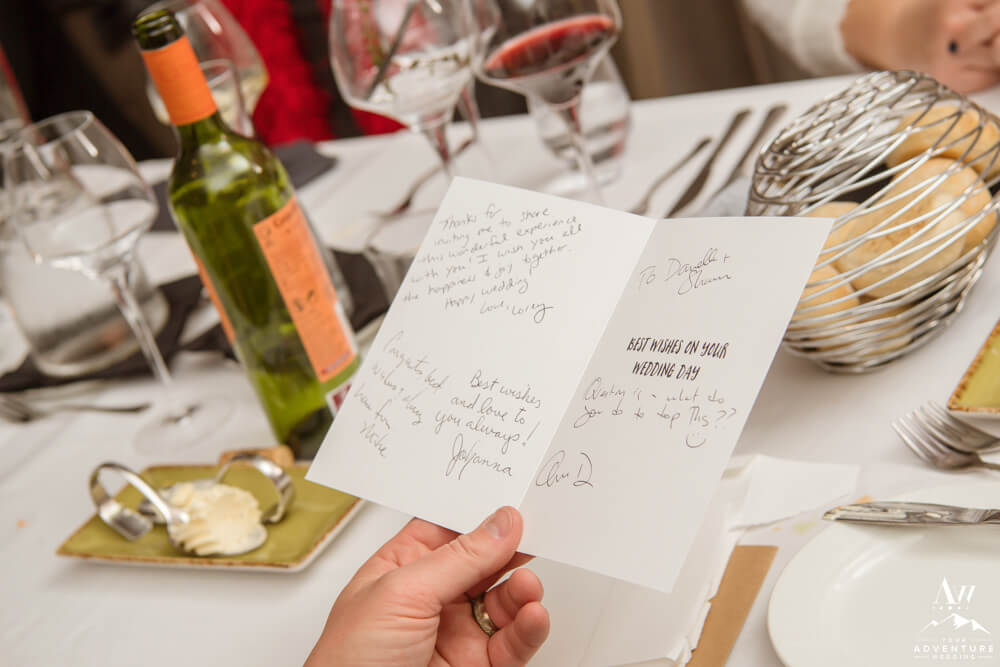 Thanks for
inviting me to share
this wonderful experience
with you! I wish you all
the happiness & joy together.
Happy wedding
Love, Corey
Best wishes
and love to
you always!
Johanna
Congrats
To Danielle +
Shawn
BEST WISHES ON YOUR
WEDDING DAY
Question is - what do
you do to top This??
YOUR
ADVENTURE
WEDDING